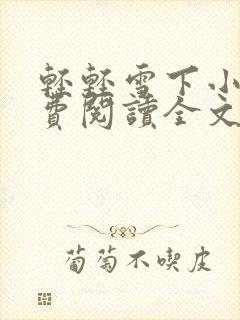 輕輕雪下小
費閱讀全文
葡萄不喫皮